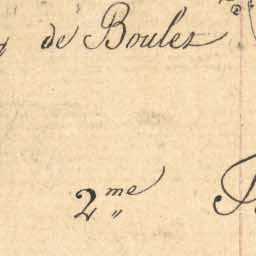 de Boulet
2me